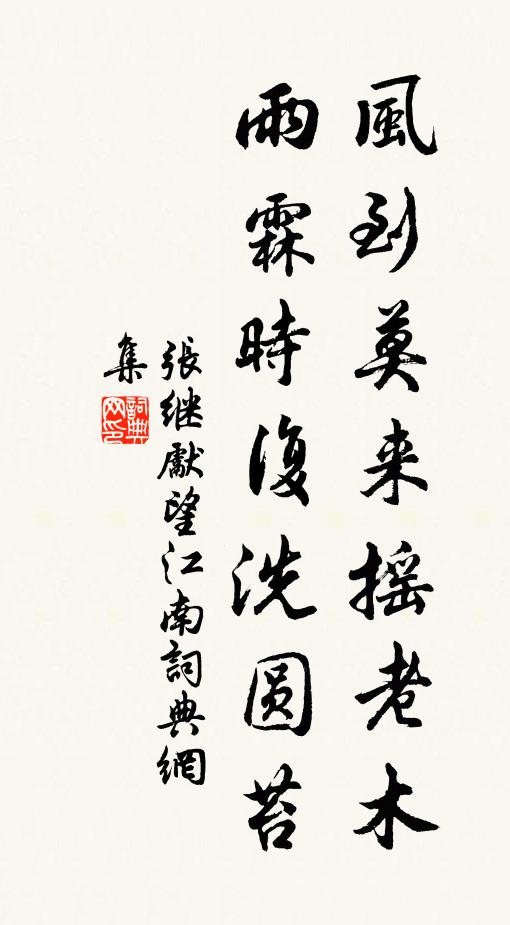 風到莫来摇老木
雨霖時復洗圆苔
張继獻望江南詞典網
集
詞典网印